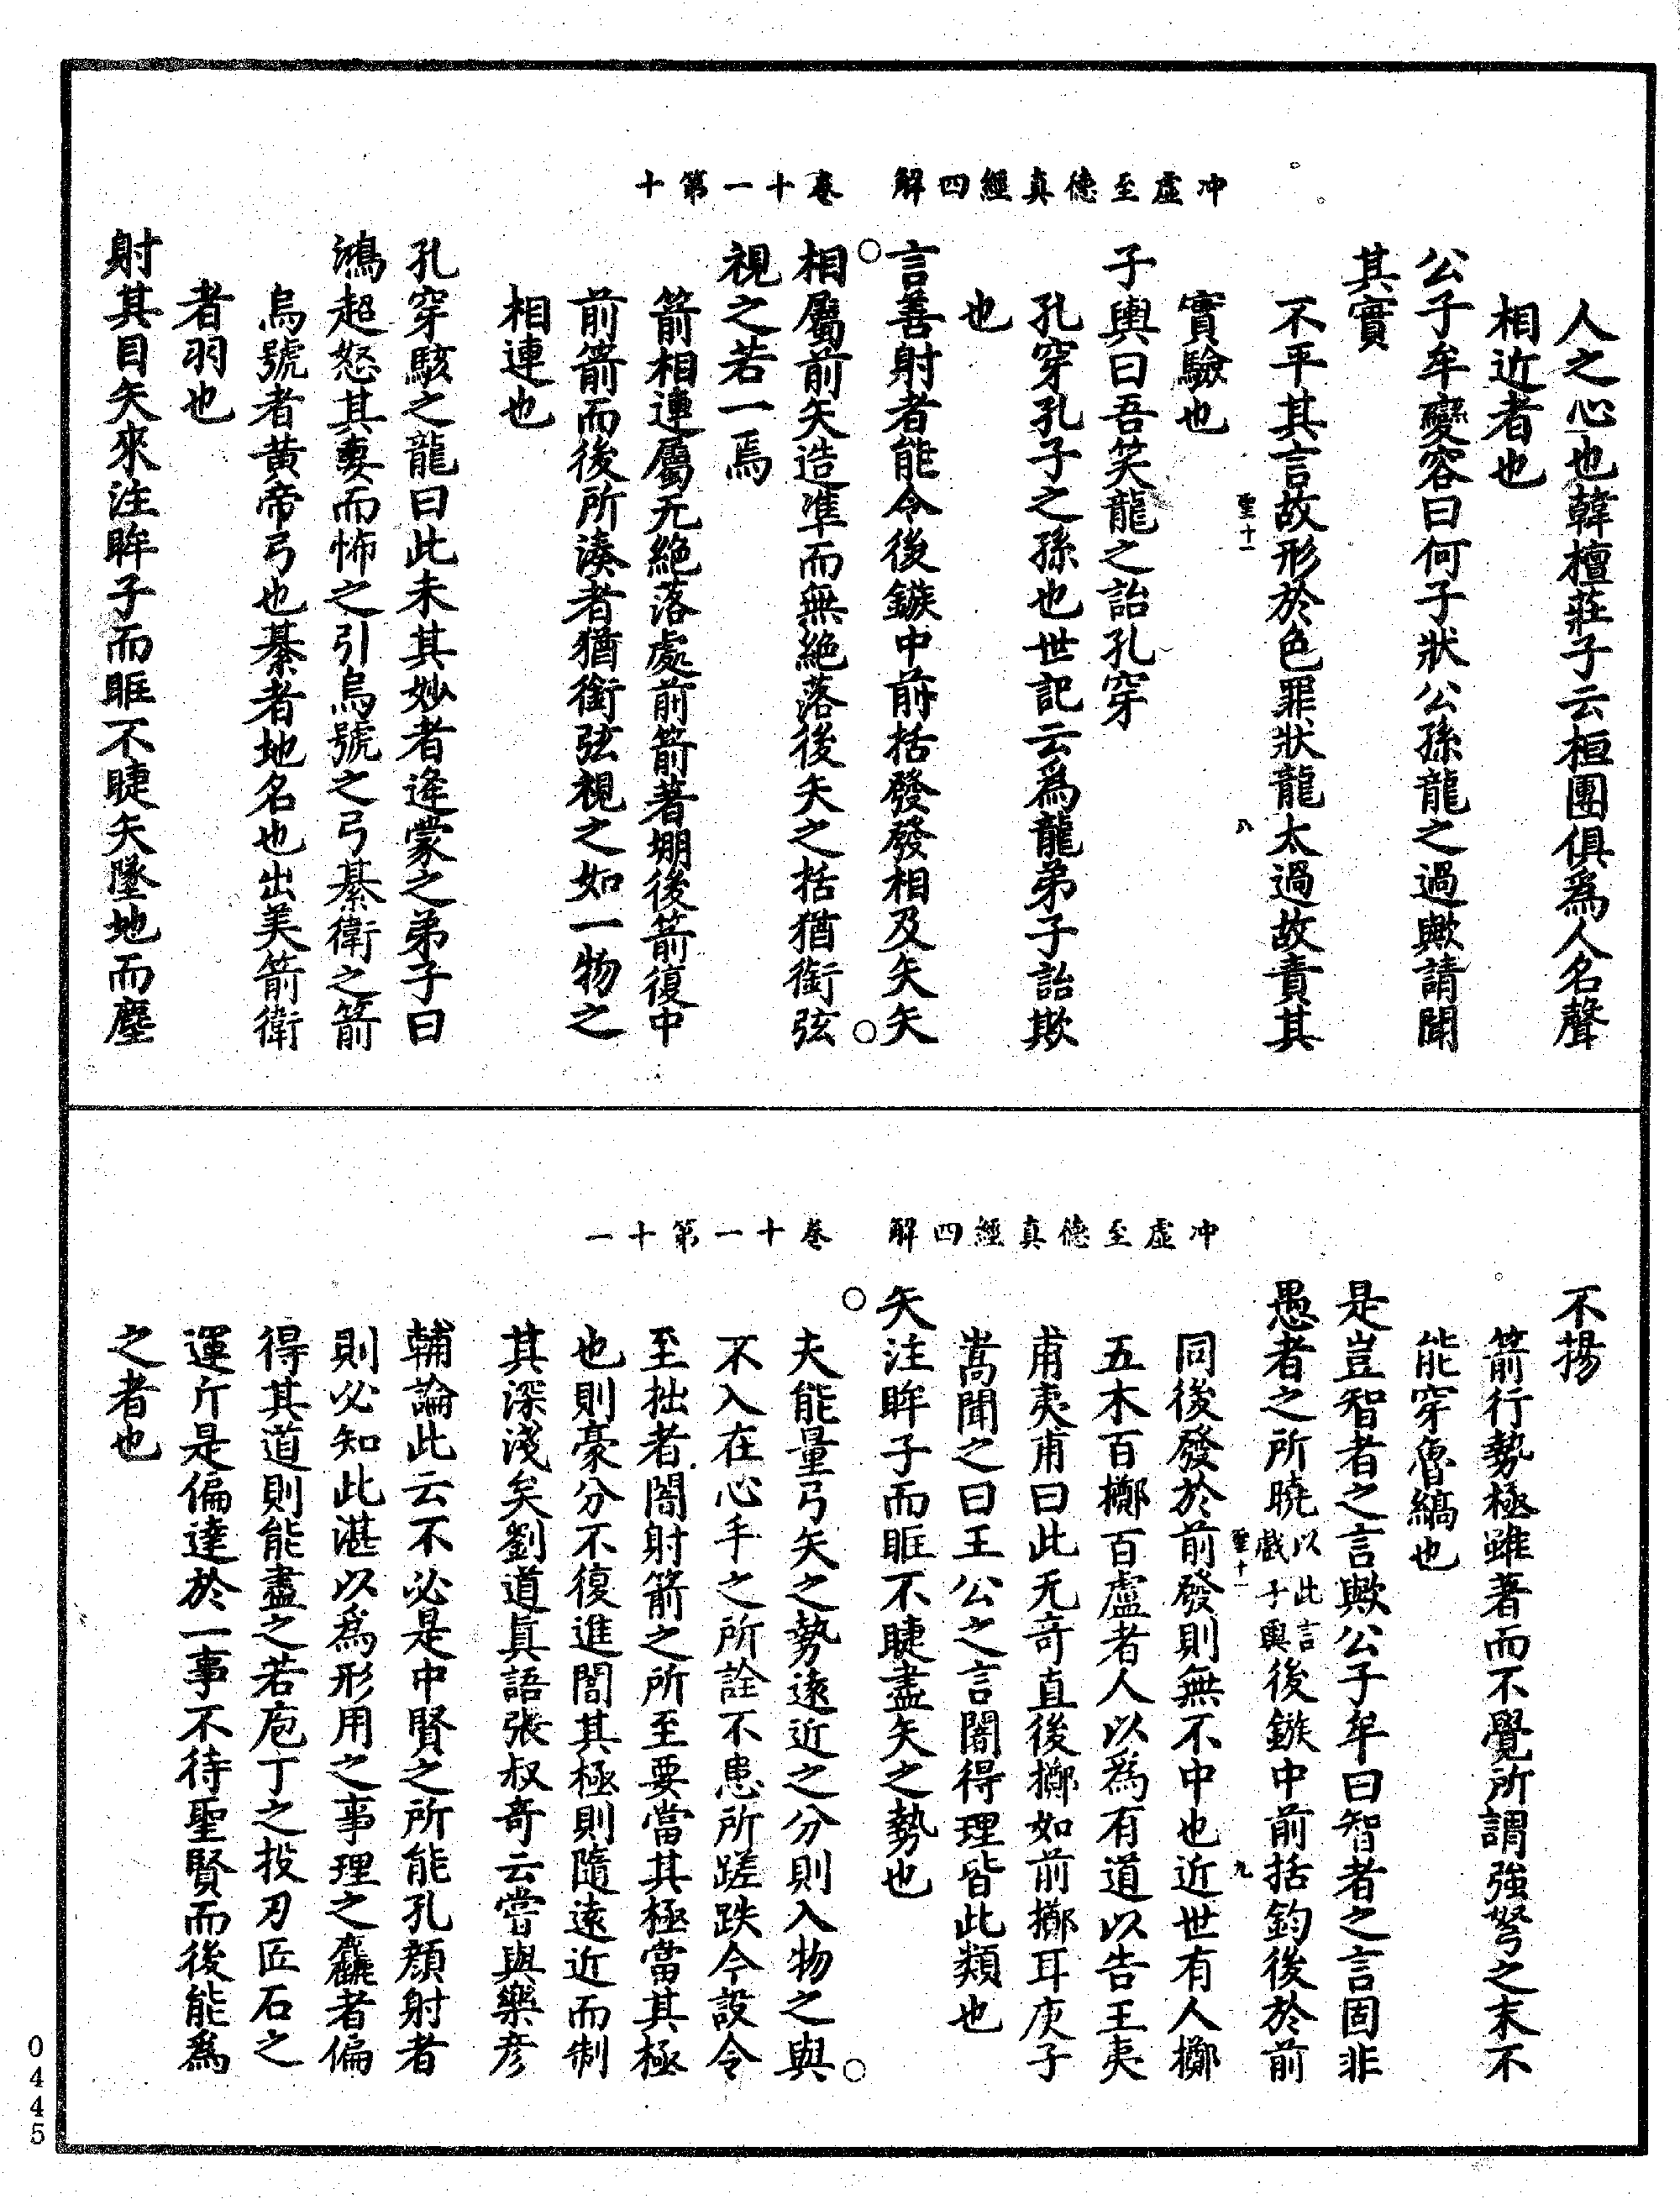 冲虛至德真經四解　卷十一第十
人之心也韓檀莊子云桓團俱爲人名聲
相近者也
公子牟變容曰何子狀公孫龍之過歟請聞
其實
不平其言故形於色罪狀龍太過故責其
實驗也
聖十一　八
子輿曰吾笑龍之詒孔穿
孔穿孔子之孫也世記云爲龍弟子詒欺
也
言善射者能令後鏃中前括發發相及矢矢
相屬前矢造準而無絶落後矢之括猶銜弦
視之若一焉
箭相連屬无絶落處前箭著堋後箭復中
前箭而後所湊者猶銜弦視之如一物之
相連也
孔穿駭之龍曰此未其妙者逄蒙之弟子曰
鴻超怒其妻而怖之引烏號之弓綦衛之箭
烏號者黄帝弓也綦者地名也出美箭衛
者羽也
射其目矢來注眸子而眶不睫矢墜地而塵
冲虛至德真經四解　卷十一第十一
不揚
箭行勢極雖著而不覺所謂強弩之末不
能穿魯縞也
是豈智者之言歟公子牟曰智者之言固非
愚者之所曉以此言戲子輿後鏃中前括鈞後於前
聖十一　九
同後發於前發則無不中也近世有人擲
五木百擲百盧者人以爲有道以告王夷
甫夷甫曰此无奇直後擲如前擲耳庾子
嵩聞之曰王公之言闇得理皆此類也
矢注眸子而眶不睫盡矢之勢也
夫能量弓矢之勢遠近之分則入物之與
不入在心手之所詮不患所蹉跌今設令
至拙者闇射箭之所至要當其極當其極
也則豪分不復進闇其極則隨遠近而制
其深淺矣劉道眞語張叔竒云嘗與樂彦
輔論此云不必是中賢之所能孔顔射者
則必知此湛以爲形用之事理之麤者偏
得其道則能盡之若庖丁之投刃匠石之
運斤是偏達於一事不待聖賢而後能爲
之者也
0445